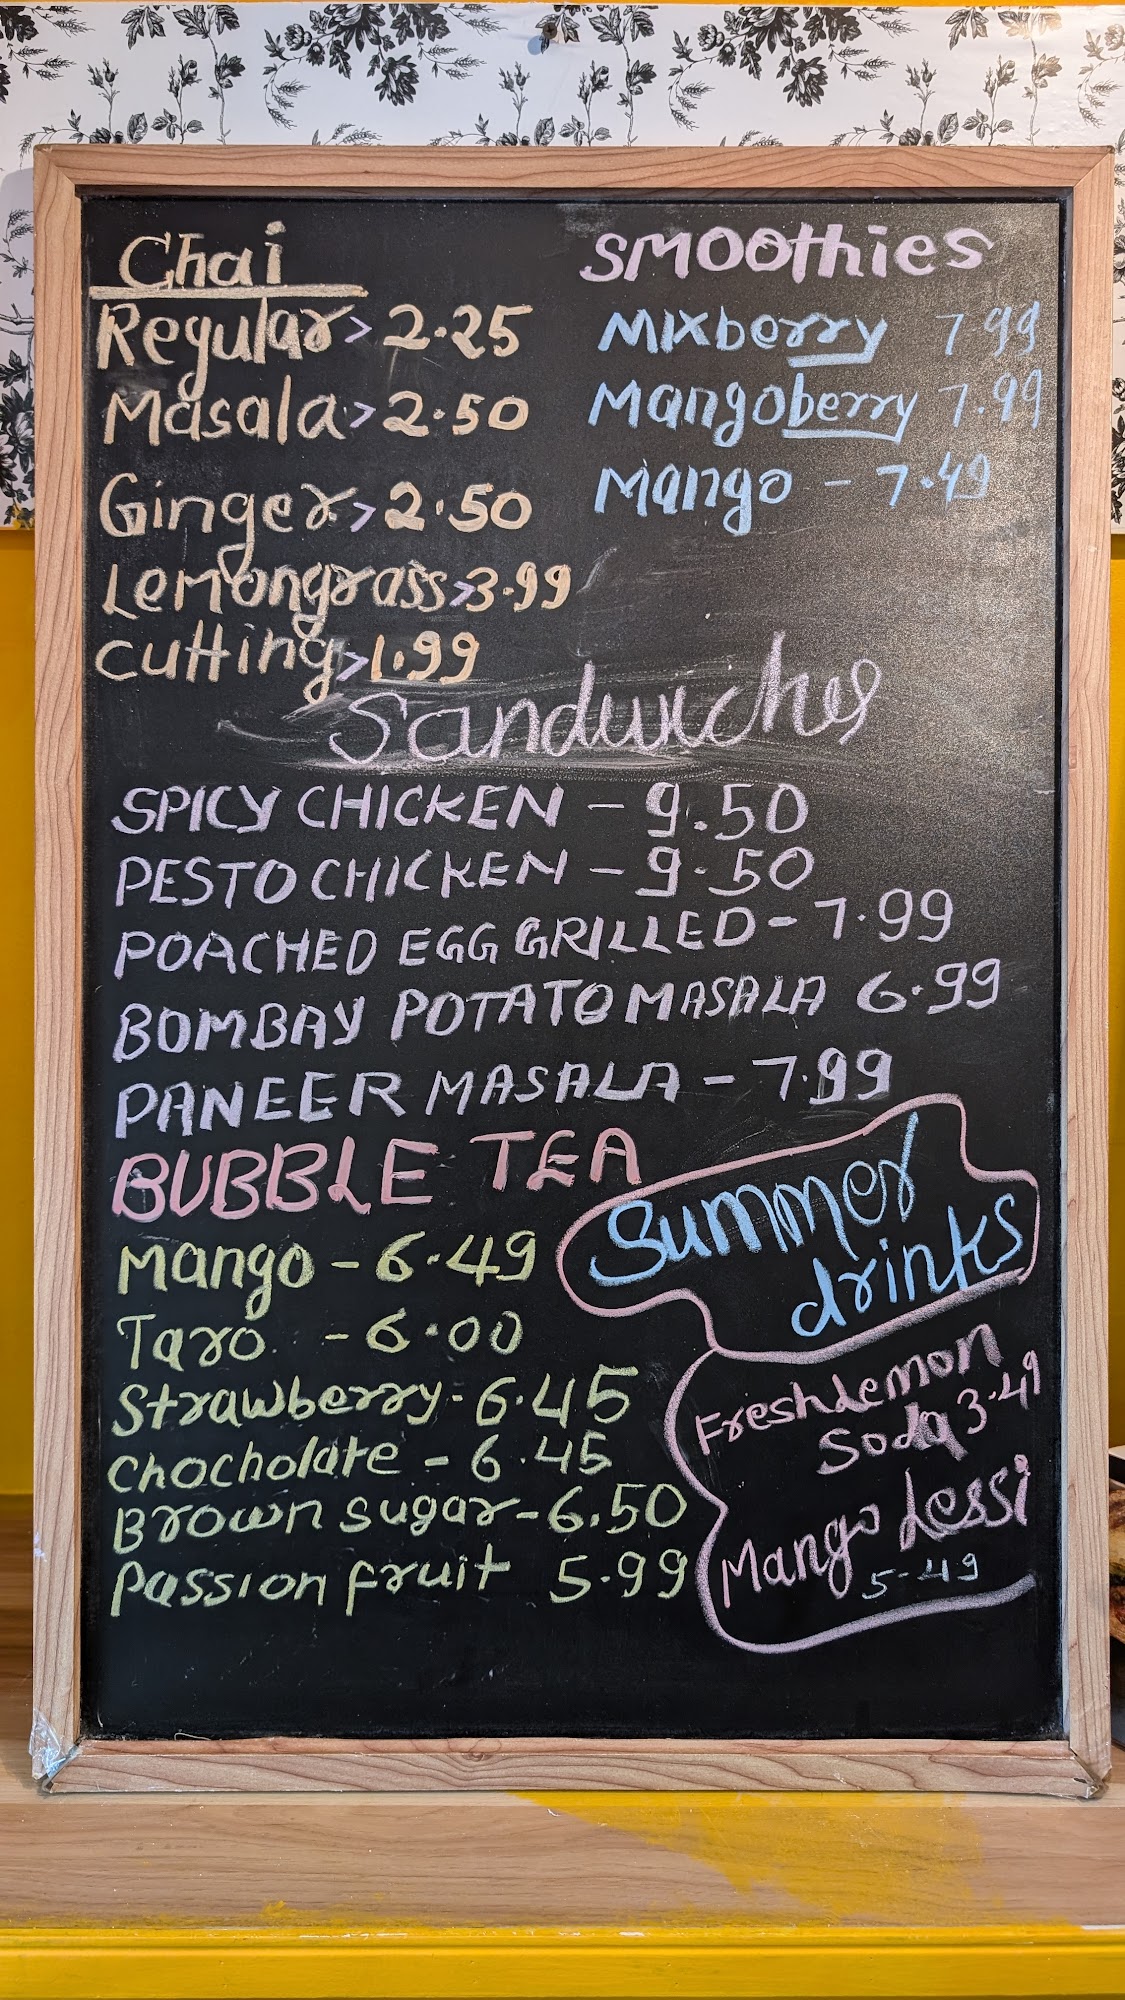 Chai
Regular > 2.25
Masala > 2.50
Ginger > 2.50
Lemongrass > 3.99
Cutting > 1.99
Smoothies
Mixberry 7.99
Mangoberry 7.99
Mango - 7.49
Sandwiches
SPICY CHICKEN - 9.50
PESTO CHICKEN - 9.50
POACHED EGG GRILLED - 7.99
BOMBAY POTATO MASALA 6.99
PANEER MASALA - 7.99
BUBBLE TEA
Mango - 6.49
Taro - 6.00
Strawberry - 6.45
chocholate - 6.45
Brown sugar - 6.50
Passion fruit 5.99
Summer
drinks
Fresh Lemon
Soda 3.49
Mango Lessi
5-49